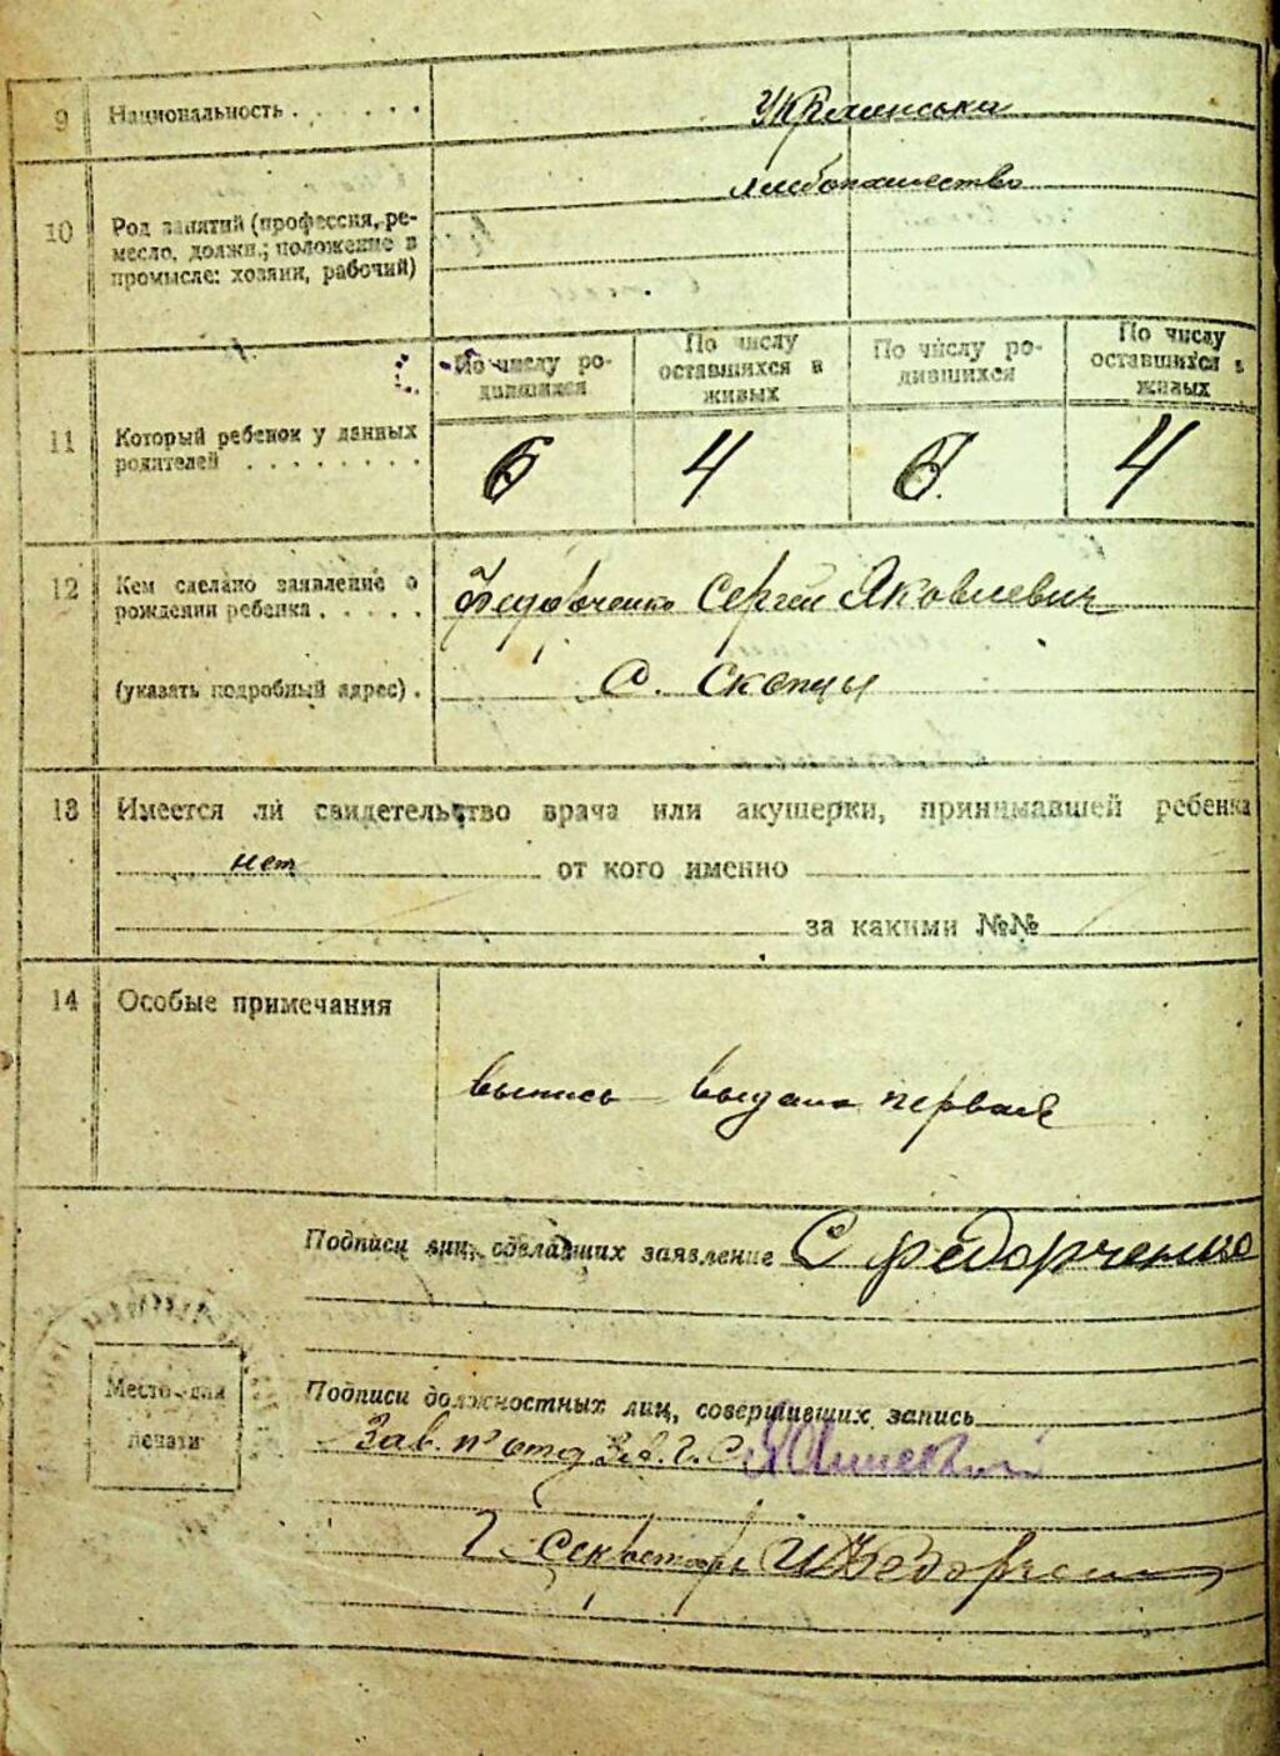 9 Национальность . . . . . . Украинська
хлебопашество
10 Род занятий (профессия, ре-
месло, должн.; положение в
промысле: хозяин, рабочий)
По числу ро-
дившихся
По числу
оставшихся в
живых
По числу ро-
дившихся
По числу
оставшихся в
живых
11 Который ребенок у данных
родителей . . . . . . . .
6 4 6 4
12 Кем сделано заявление о
рождении ребенка . . . . .
Федорченко Сергей Яковлевич
(указать подробный адрес) . С. Скопцы
13 Имеется ли свидетельство врача или акушерки, принимавшей ребенка
нет от кого именно
за какими №№
14 Особые примечания
выпись выдана первая
Подписи лиц, сделавших заявление С Федорченко
Подписи должностных лиц, совершивших запись
Место для
печати
Зав. п отд З.А.Г.С.
Секретарь И Федорченко